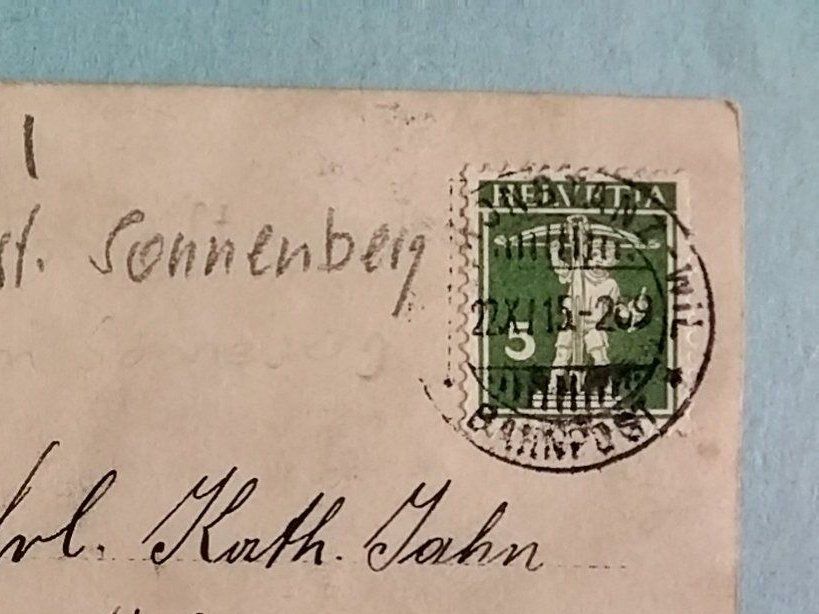 st. Sonnenberg
HELVETIA
WIL
22.XI.15.-209
5
BAHNPOST
Frl. Kath. Jahn